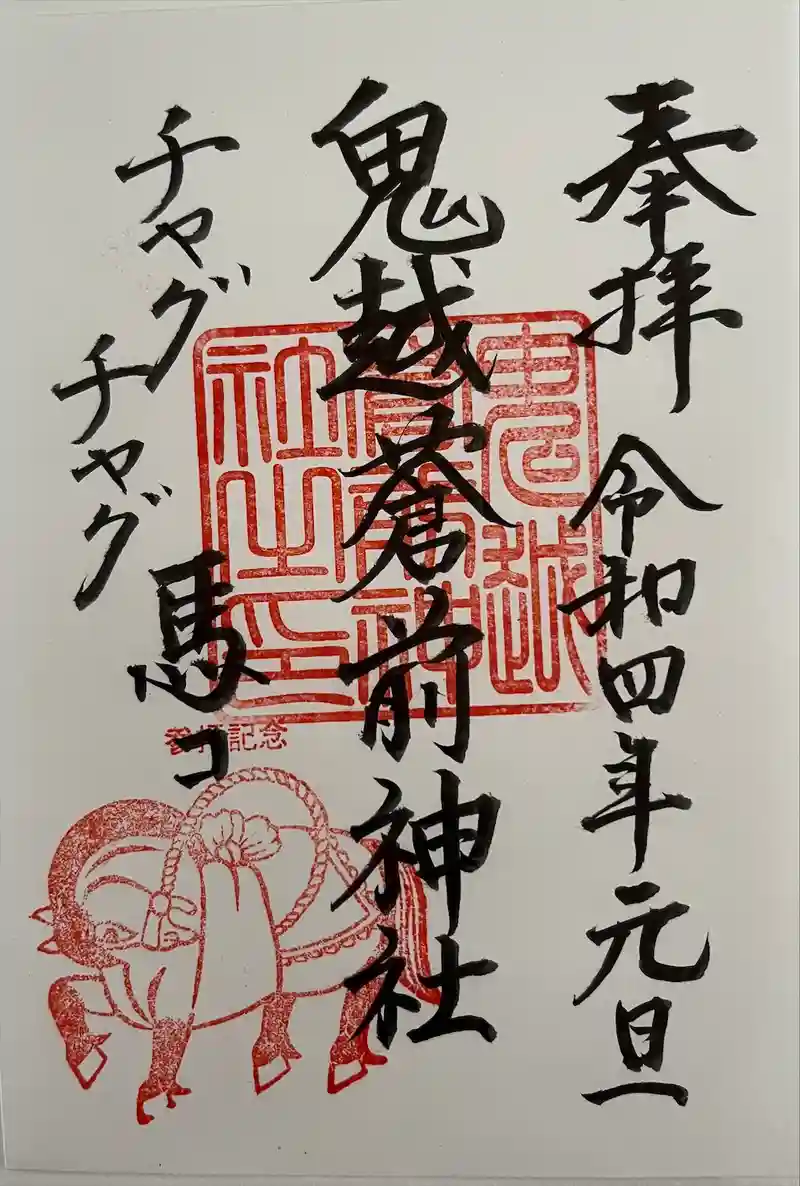 奉拝 令和四年元旦
鬼越蒼前神社
チャグ
チャグ
馬コ
鬼越
蒼前神
社之印
記念